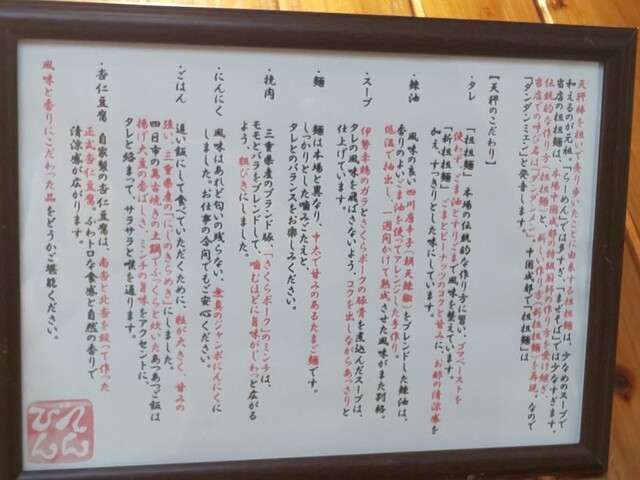 天秤棒を担いで売り歩いたことに由来する担担麺は、少なめのスープで
和えるのが元祖。「らーめん」では多すぎ、「まぜそば」では少なすぎます。
当店の担担麺は、本場中国成都の特級厨師から作り方を受け継ぎ
伝統的な作り方の「担担麺」と、新しい作り方「新担担麺」を再現。なので
当店での呼び名は「タンタンメン」。中国成都で「担担麺」は
「ダンダンミェン」と発音します。
【天秤のこだわり】
・タレ
「担担麺」本場の伝統的な作り方に習い、ゴマペーストを
使わず、ごま油とすりごまで風味を整えています。
「新担担麺」ごまとピーナッツのコクと甘みに、お酢の清涼感を
加え、すっきりとした味にしています。
・辣油
風味の良い四川唐辛子(朝天辣椒)をブレンドした辣油は、
香りのよいごま油を使ってアレンジした手作り。
低温で抽出し、一週間かけて熟成させた風味がまた別格。
・スープ
伊勢赤鶏のガラとさくらポークの豚骨を煮込んだスープは、
タレの風味を飛ばさないよう、コクを出しながらあっさりと
仕上げています。
・麺
麺は本場と異なり、中太で甘みのあるたまご麺です。
しっかりとした噛みごたえと、
タレとのバランスをお楽しみください。
・挽肉
三重県産のブランド豚、「さくらポーク」のミンチは、
モモとバラをブレンドして、噛むほどに旨味がじわっと広がる
よう、粗びきにしました。
・にんにく
風味はあれど匂いの残らない、無臭のジャンボにんにくに
しました。お仕事の合間でもご安心ください。
・ごはん
追い飯にして食べていただくために、粒が大きく、甘みの
強い、三重県産の「にじのきらめき」にしました。
四日市の萬古焼きの土鍋でふっくらと炊いたあつあつご飯は
揚げ大豆の香ばしさ、ミンチの旨味をアクセントに、
タレと絡まって、サラサラと喉を通ります。
・杏仁豆腐
自家製の杏仁豆腐は、南杏と北杏を絞って作った
正式杏仁豆腐。ふわトロな食感と自然の香りで
清涼感が広がります。
風味と香りにこだわった品をどうかご堪能ください。
てんびん